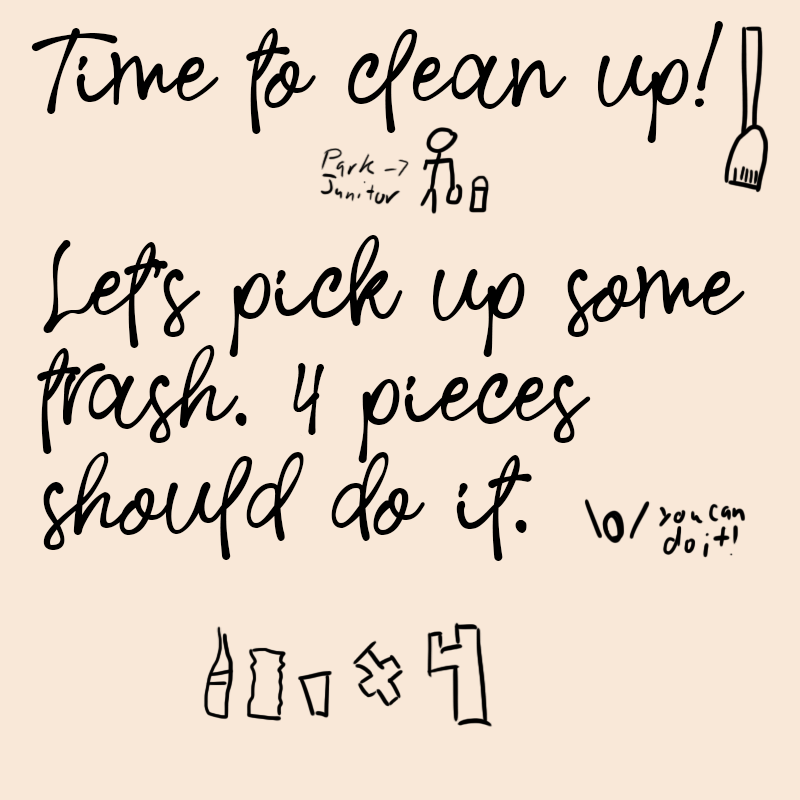 Time to clean up!
Park ->
Junitor
Let's pick up some
trash. 4 pieces
should do it.
\o/ you can
do it!
x 4